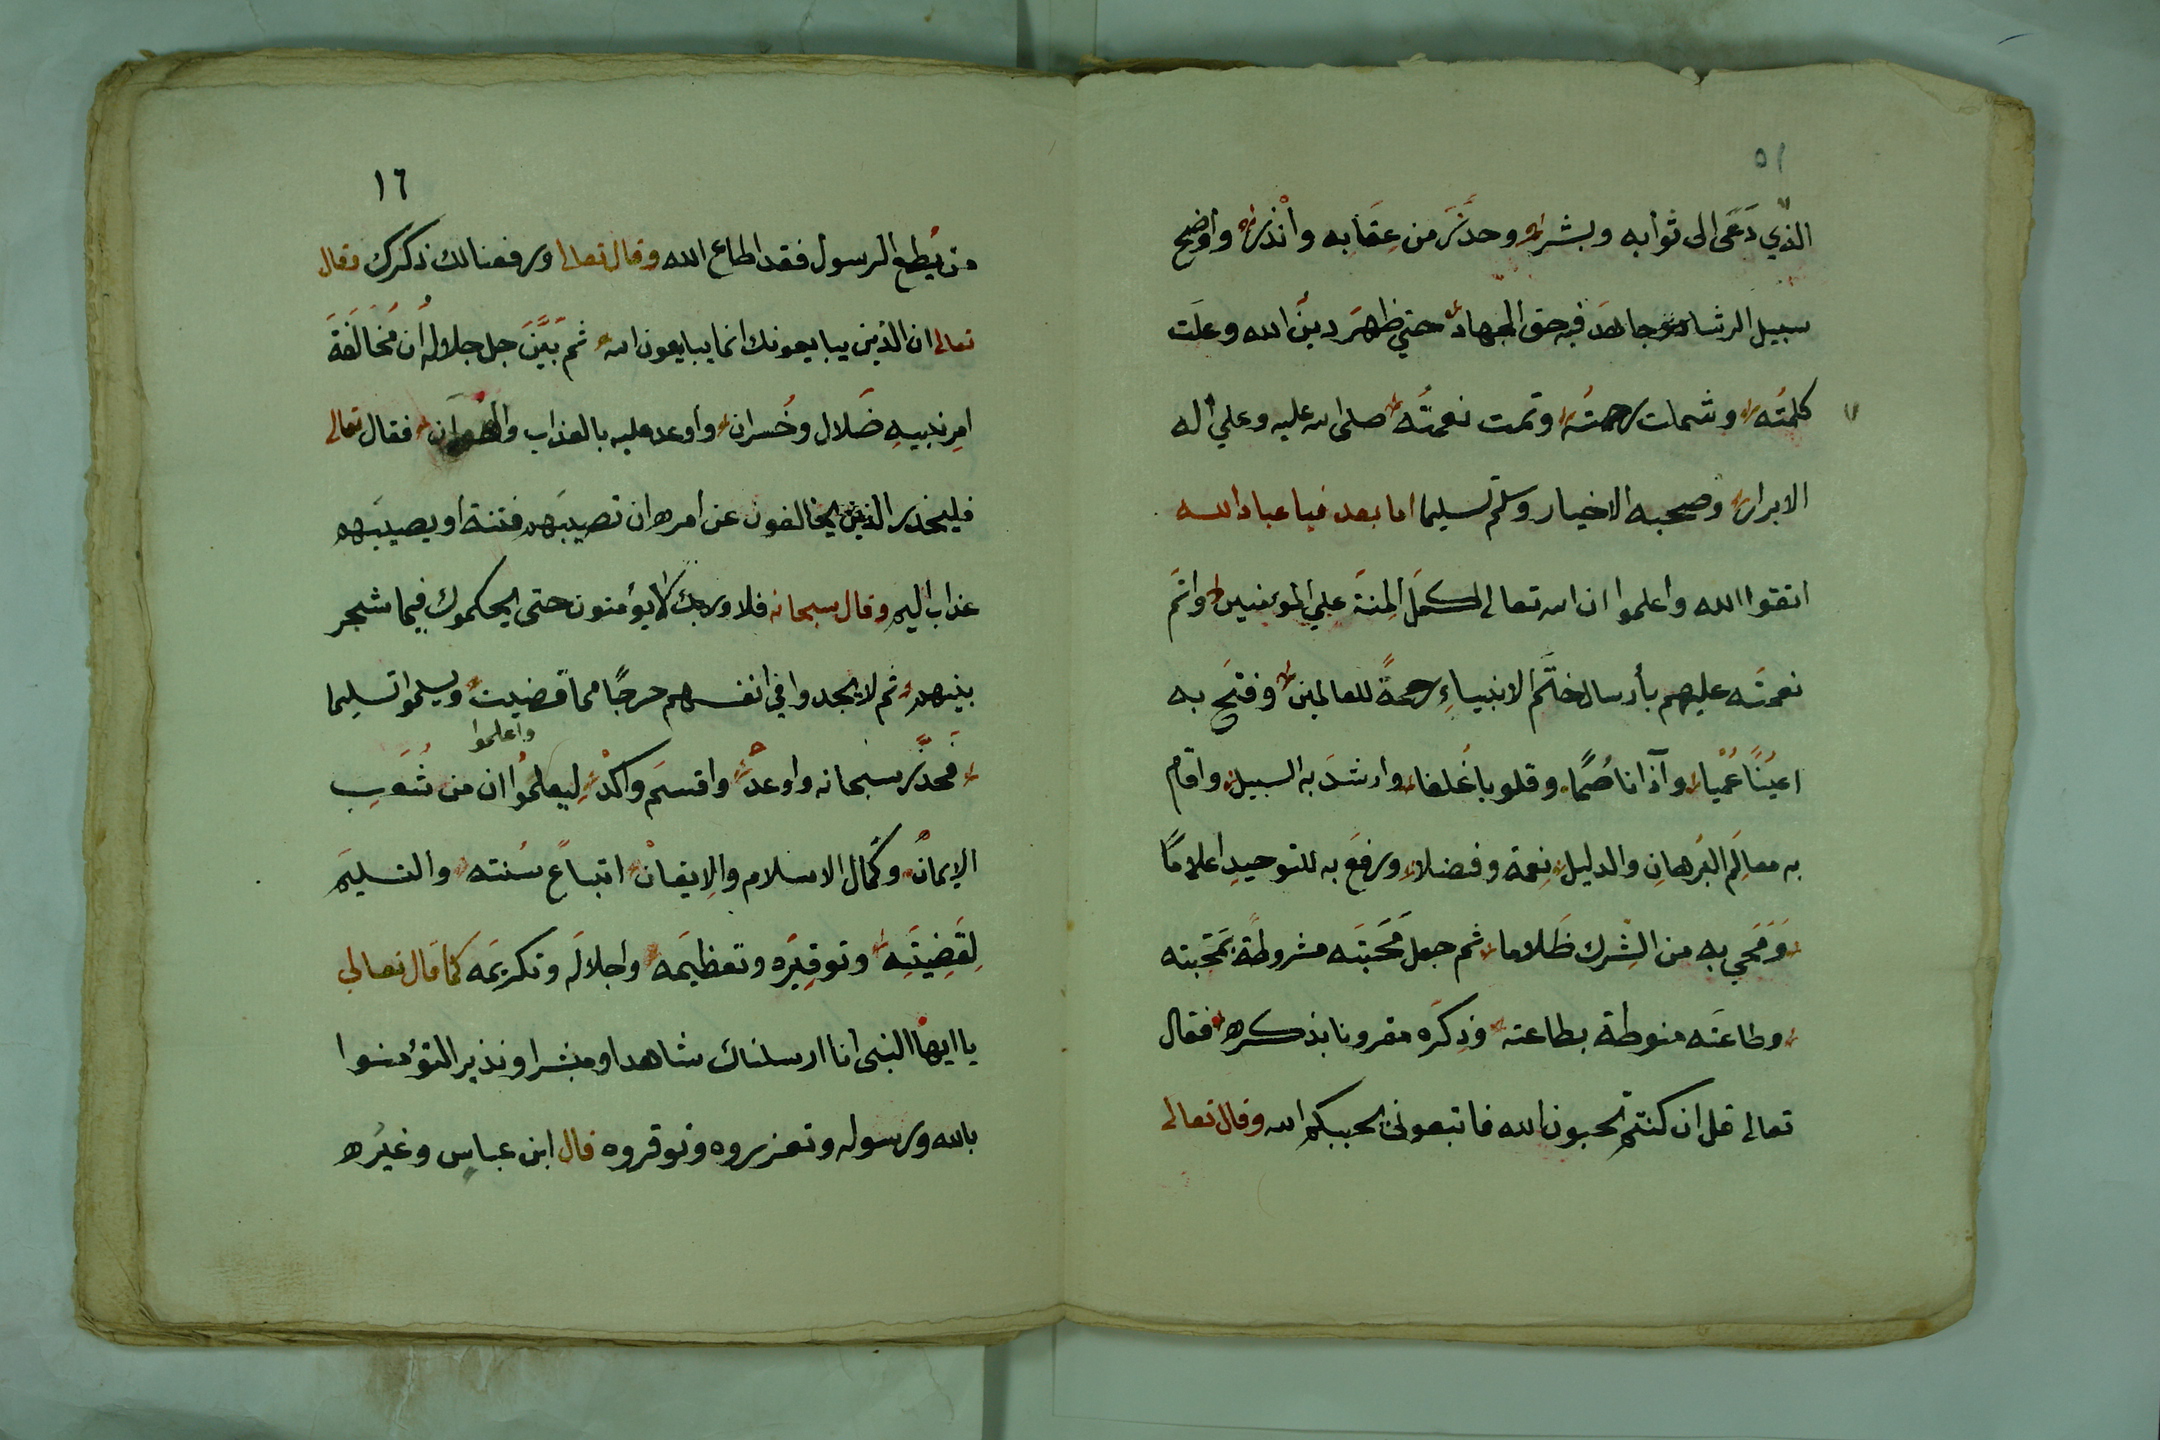 ٥١
الذّي دَعَى الى ثوابه وبشر وحذَّرَ من عِقَابه وأنْذر وأوضح
سبيل الرشاد وجاهدَ فيه حق الجهاد حتي ظهَر دينُ الله وعلَت
كلمتُه وشملت رحمتُه وتمت نعمتُه صلى الله عليه وعلي اله
الابرار وصحبه الاخيار وسلم تسليما اما بعد فيا عباد الله
اتقوا الله واعلموا ان الله تعالى كمَّل المِنَة علي المؤمنين واتمَّ
نعمتَه عليهم بأرسال خاتَم الانبياءِ رحمةً للعالمين وفتَح به
اعينًا عُمْيا وآذانا صُمًّا وقلوبا غُلفا وارشدَ به السبيل واقام
به معالِمَ البُرهانِ والدليل نِعمة وفضلا ورفعَ به للتوحيدِ اعلامًا
وَمَحي به من الشِرك ظَلاما ثم جعل مَحَبتَه مشروطةً بمَحَبته
وطاعتَه منوطة بطاعته وذِكرَه مقرونا بذكره فقال
تعالى قل ان كنتم تحبون الله فاتبعوني يحببكم الله وقال تعالى
١٦
من يُطع الرسول فقد اطاع الله وقال تعالى ورفعنا لك ذكرك وقال
تعالى ان الذين يبايعونك انما يبايعون الله ثم بَيَّنَ جل جلاله أن مُخالَفَةَ
امرِ نبيهِ ضَلال وخُسران وأوعد عليه بالعذاب والهوان فقال تعالى
فليحذر الذين يخالفون عن امره ان تصيبَهم فتنة او يصيبَهم
عذاب اليم وقال سبحانه فلا وربك لا يؤمنون حتى يحكموك فيما شجر
بينهم ثم لا يجدوا في انفسهم حرجًا مما قضيت ويسلموا تسليما
واعلموا
فحذَّر سبحانه واوعدَ واقسَم واكدْ لِيعلمُوا ان من شُعَبِ
الإيمان وكمَال الاسلام والإيقان اتباعَ سُنته والتسليمَ
لِقَضِيَتِه وتوقِيرَه وتعظيمَه واجلالَه وتكريمَه كما قال تعالي
يا ايها النبى انا ارسلناك شاهدا ومبشرا ونذيرا لتؤمنوا
بالله ورسوله وتعزروه وتوقروه قال ابن عباس وغيرُه